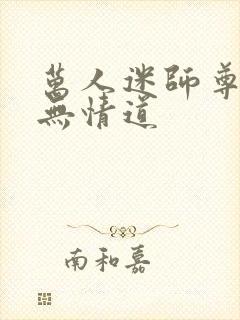 萬人迷師尊
無情道
南和嘉